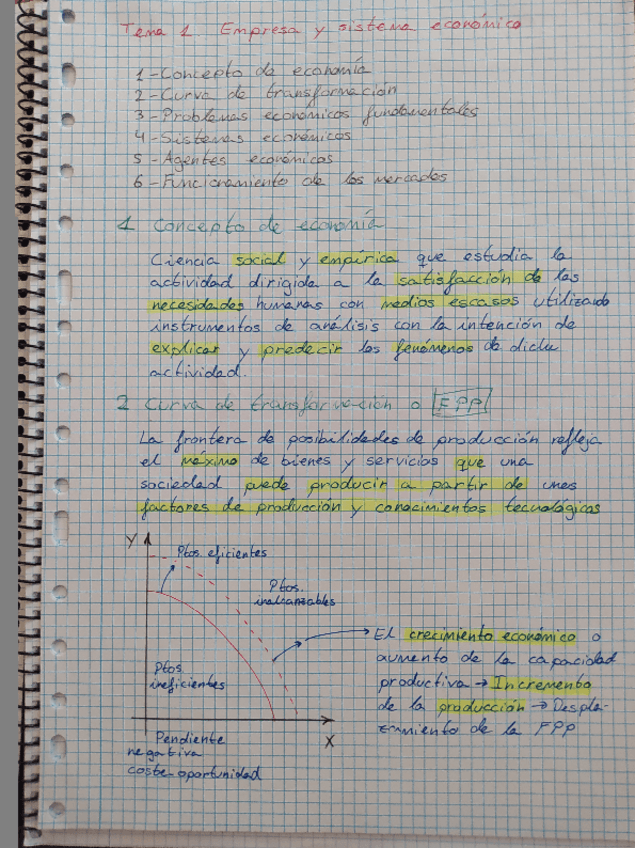 Tema 1 Empresa y sistema económico
1-Concepto de economía
2-Curva de transformación
3-Problemas económicos fundamentales
4-Sistemas económicos
5-Agentes económicos
6-Funcionamiento de los mercados
1 Concepto de economía
Ciencia social y empírica que estudia la
actividad dirigida a la satisfacción de las
necesidades humanas con medios escasos utilizando
instrumentos de análisis con la intención de
explicar y predecir los fenómenos de dicha
actividad.
2 Curva de transformación o FPP
La frontera de posibilidades de producción refleja
el máximo de bienes y servicios que una
sociedad puede producir a partir de unos
factores de producción y conocimientos tecnológicos
Y
Ptos. eficientes
Ptos.
inalcanzables
Ptos.
ineficientes
X
Pendiente
negativa
coste-oportunidad
→ El crecimiento económico o
aumento de la capacidad
productiva → Incremento
de la producción → Despla-
zamiento de la FPP